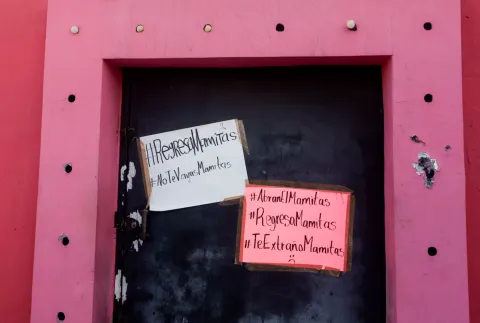 #RegresaMamitas
#NoTeVayasMamitas
#AbranElMamitas
#RegresaMamitas
#TeExtrañoMamitas